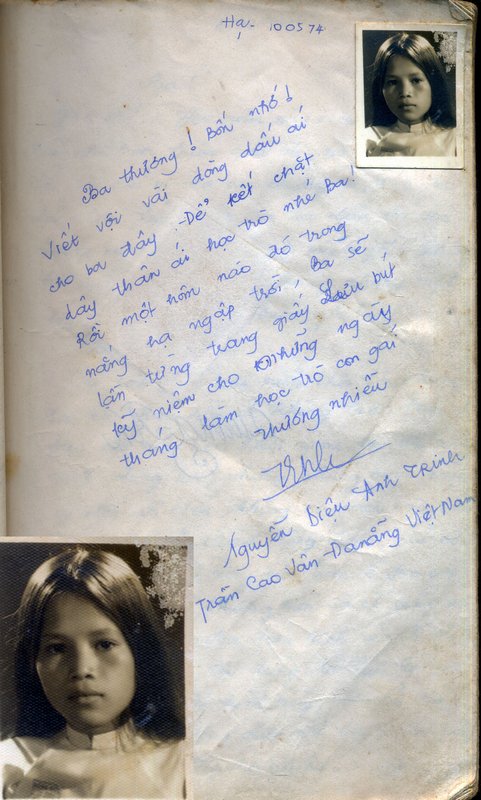 Hạ - 100574
Ba thương! Bốn nhớ!
Viết vội vài dòng dấu ái
cho ba đây. Để kết chặt
dây thân ái học trò nhé Ba!
Rồi một hôm nào đó trong
nắng hạ ngập trời, Ba sẽ
lần từng trang giấy Lưu bút
kỹ niệm cho những ngày
tháng làm học trò con gái
thương nhiều
Nguyễn Diệu Anh TRINH
Trần Cao Vân - Danẵng Việt Nam